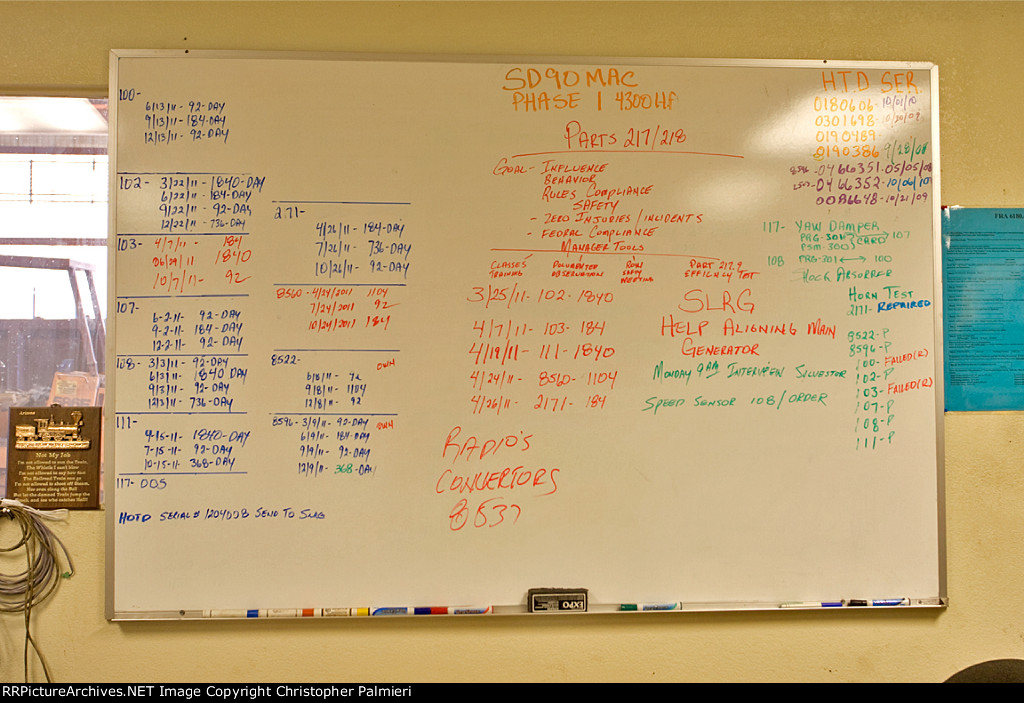 100-
6/13/11- 92-DAY
9/13/11- 184-DAY
12/13/11- 92-DAY
102- 3/22/11- 1840-DAY
6/22/11- 184-DAY
9/22/11- 92-DAY
12/22/11- 736-DAY
103- 4/7/11- 184
06/29/11- 1840
10/7/11- 92
107-
6-2-11- 92-DAY
9-2-11- 184-DAY
12-2-11- 92-DAY
108- 3/3/11- 92-DAY
6/3/11- 1840 DAY
9/3/11- 92-DAY
12/3/11- 736-DAY
111-
4-15-11- 1840-DAY
7-15-11- 92-DAY
10-15-11- 368-DAY
117- OOS
HOTD SERIAL# 1204008 SEND TO SLRG
2171-
4/26/11- 184-DAY
7/26/11- 736-DAY
10/26/11- 92-DAY
8560- 4/24/2011 1104
7/24/2011 92
10/24/2011 184
8522- OWN
6/8/11- 92
9/8/11- 1104
12/8/11- 92
8596- 3/9/11- 92-DAY OWN
6/9/11- 184-DAY
9/9/11- 92-DAY
12/9/11- 368-DAY
SD90MAC
PHASE 1 4300HP
PARTS 217/218
GOAL- INFLUENCE
BEHAVIOR
RULES COMPLIANCE
SAFETY
- ZERO INJURIES/INCIDENTS
- FEDRAL COMPLIANCE
MANAGER TOOLS
CLASSES
TRAINING
OBSERVATION
SAFETY
MEETING
PART 217.9
TEST
3/25/11- 102- 1840
4/7/11- 103- 184
4/19/11- 111- 1840
4/24/11- 8560- 1104
4/26/11- 2171- 184
SLRG
HELP ALIGNING MAIN
GENERATOR
MONDAY 9AM INTERVIEW SILVESTOR
SPEED SENSOR 108/ORDER
RADIO'S
CONVERTORS
8537
H.T.D SER.
0180606- 10/01/10
0301698- 10/20/09
0190489-
0190386 9/28/08
8596- 0466351-05/05/08
0466352-10/06/10
0086648-10/21/09
117- YAW DAMPER
PRG-301
PSM-300 CARD 107
108 PRG-301 100
SHOCK ABSORBER
HORN TEST
2171- REPAIRED
8522-P
8596-P
100-FAILED(R)
102-P
103-FAILED(R)
107-P
108-P
111-P
EXPO
Not My Job
I'm not allowed to run the Train,
The Whistle I can't blow
I'm not allowed to say how fast
The Railroad Train can go
I'm not allowed to shoot off Steam,
Nor even clang the Bell
But let the damned Train jump the
track, and see who catches Hell!!
RRPictureArchives.NET Image Copyright Christopher Palmieri